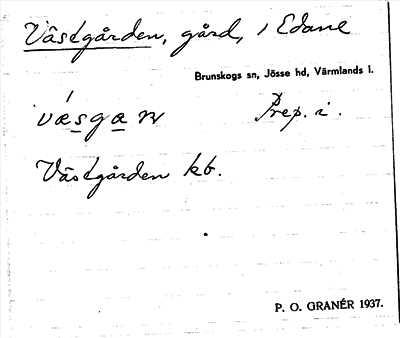 Västgården, gård, i Edane
Brunskogs sn, Jösse hd, Värmlands l.
væsgaṇ Prep. i.
Västgården kb.
P. O. GRANÉR 1937.